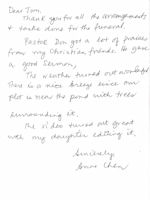 Dear Tom,
Thank you for all the arrangements
& tasks done for the funeral.
Pastor Don got a lot of praises
from my Christian friends. He gave
a good sermon,
The weather turned out wonderful
There is a nice breeze since our
plot is near the pond with trees
surrounding it.
The video turned out great
with my daughter editing it.
Sincerely
Chen